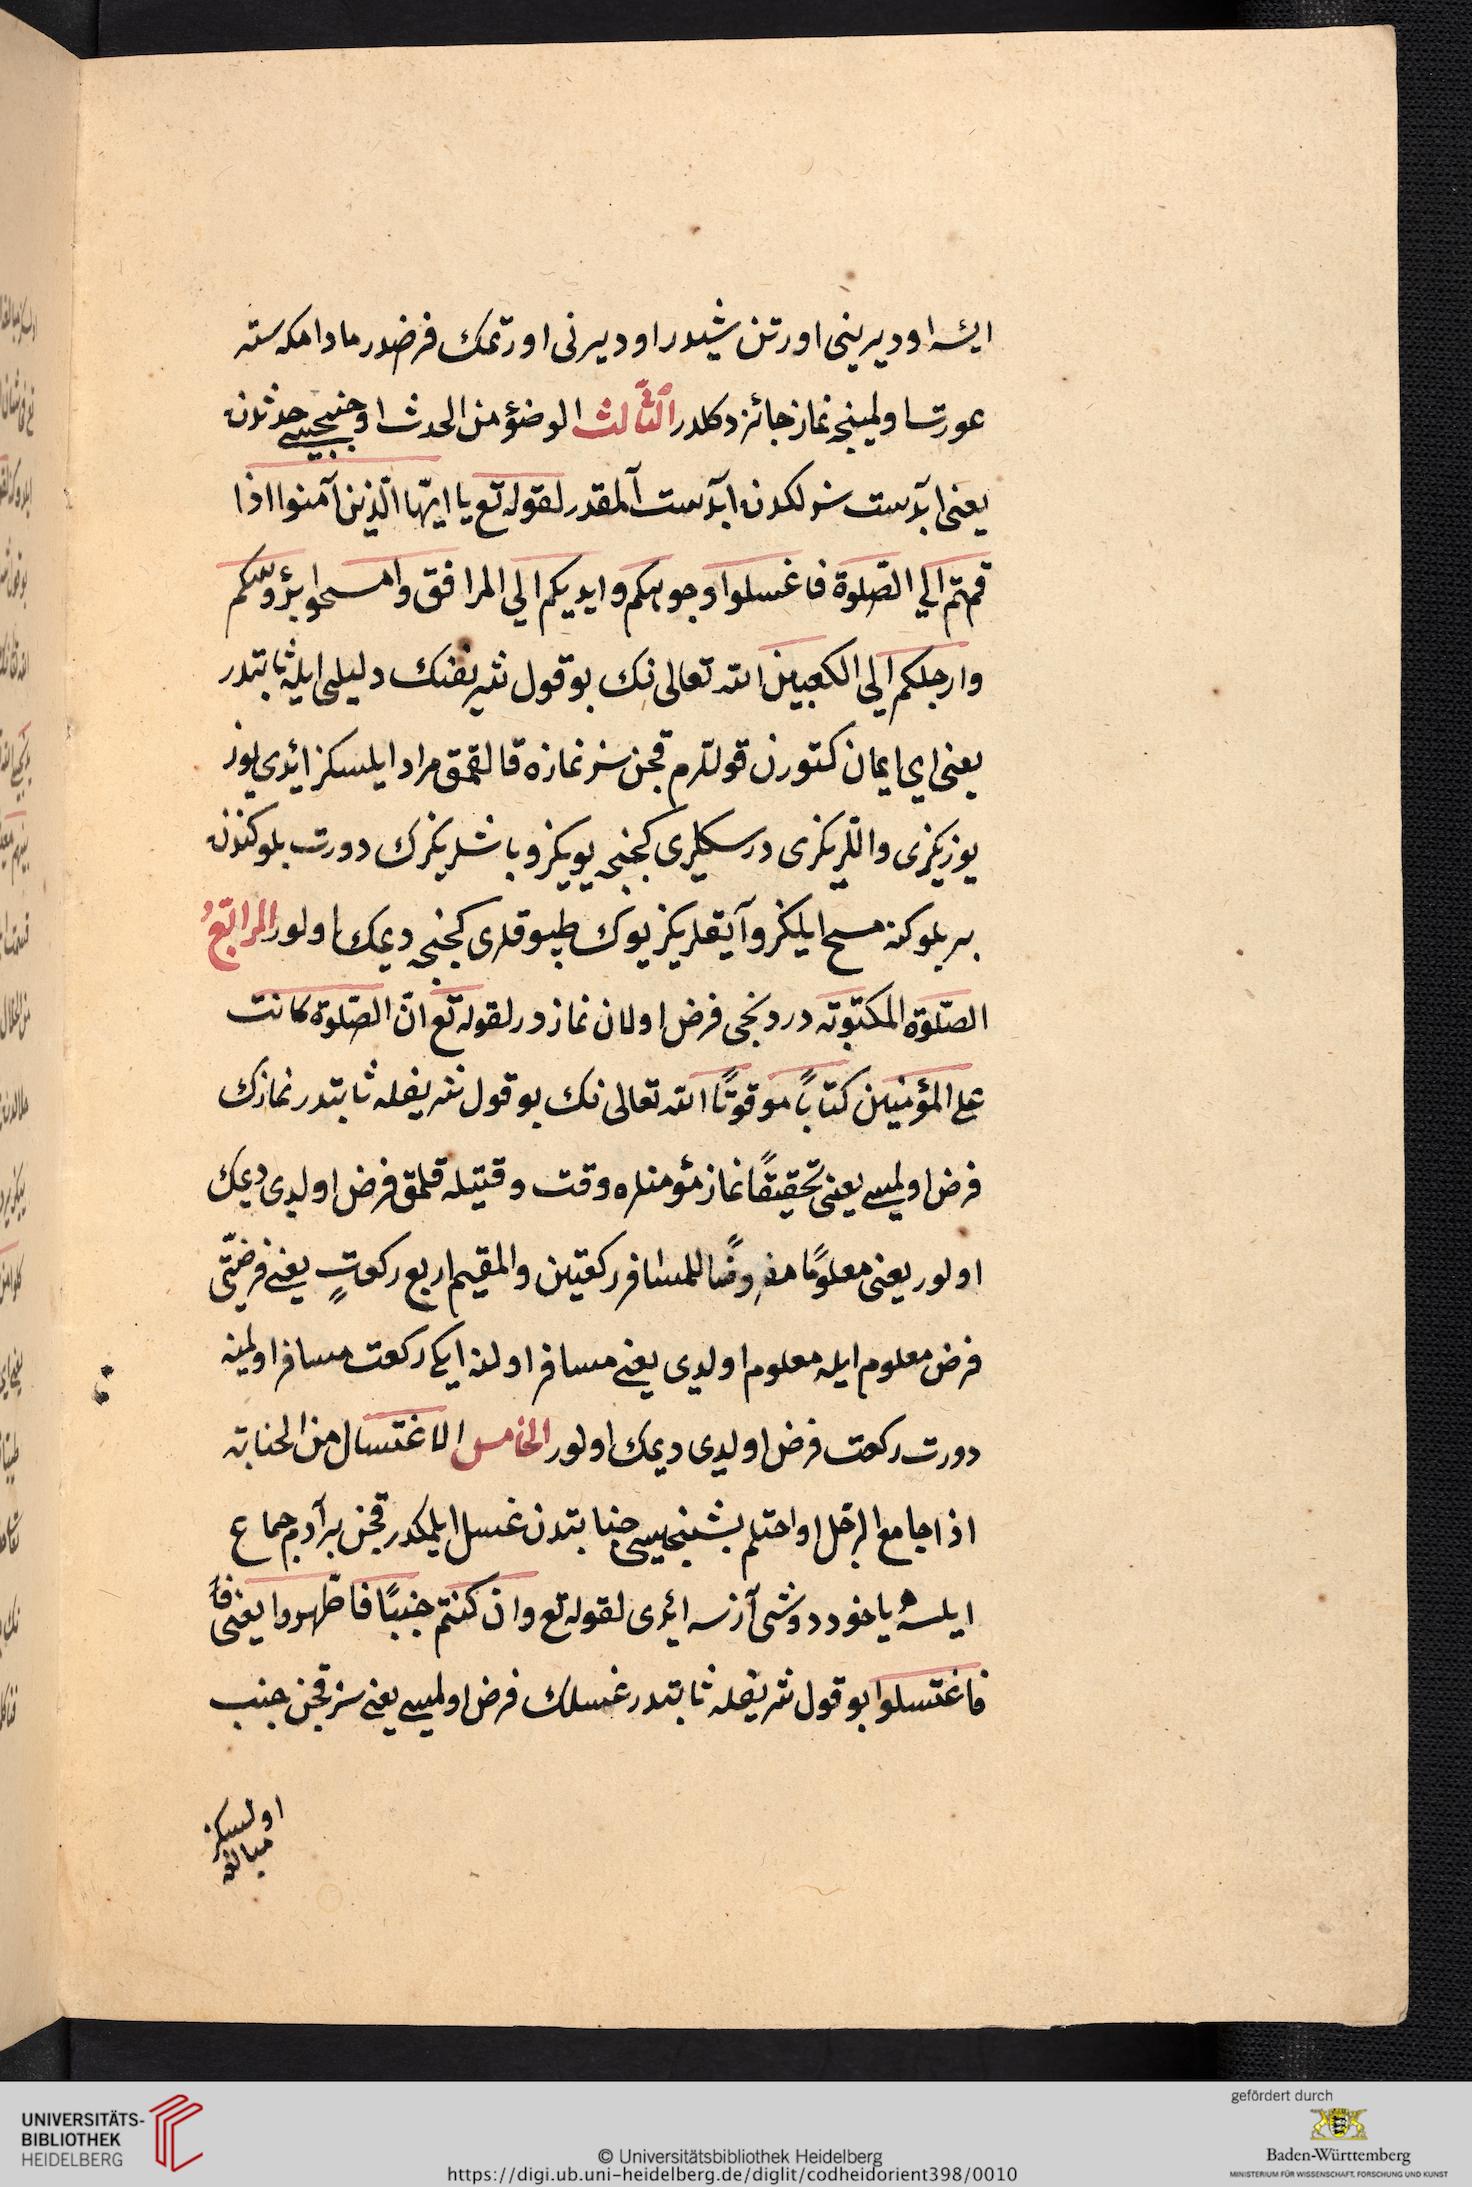 ايسه اوديرينى اورتن شيدر اوديرنى اورتمك فرضدر مادامكه ستر
عورت اولمينجه نماز جائز دكلدر الثّالث الوضؤ من الحدث اوجنجيسى حدثدن
يعنى ابدست سزلكدن ابدست آلمقدر لقوله تع يا ايّها الّذين آمنوا اذا
قمتم الي الصّلوة فاغسلوا وجوهكم وايديكم الي المرافق وامسحوا برؤسكم
وارجلكم الي الكعبين الله تعالى نك بو قول شريفنك دليلى ايله ثابتدر
يعنى اي ايمان كتورن قوللرم قچن سز نمازه قالقمق مراد ايلسكز ائدى يوز
يوزيكزى واللريكزى درسكلرى كچنجه يويكز وباشلريكزك دورت بلوكندن
بر بلوكنه مسح ايلكز وآيقلريكز يوك طپوقلرى كچنجه ديمك اولور الرابعُ
الصّلوة المكتوبة دردنجى فرض اولان نمازدر لقوله تع انّ الصّلوة كانت
على المؤمنين كتابًا موقوتًا الله تعالى نك بو قول شريفله ثابتدر نمازك
فرض اولمسى يعنى تحقيقًا نماز مؤمنلره وقت وقتيله قلمق فرض اولدى ديمك
اولور يعنى معلومًا مفروضًا للمسافر ركعتين والمقيم اربع ركعتٍ يعنى فرضيّتى
فرض معلوم ايله معلوم اولدى يعنى مسافر اولنه ايكى ركعت مسافر اولمينه
دورت ركعت فرض اولدى ديمك اولور الخامس الاغتسال من الجنابة
اذا جامع الرجل او احتلم بشنجيسى جنابتدن غسل ايلمكدر قچن بر آدم جماع
ايلسه ياخود دوشى آزسه ائدى لقوله تع وان كنتم جنبًا فاطّهروا يعنى
فاغتسلوا بو قول شريفله ثابتدر غسلك فرض اولمسى يعنى سز قچن جنب
اولسكز
مبالغه
UNIVERSITÄTS-
BIBLIOTHEK
HEIDELBERG
© Universitätsbibliothek Heidelberg
https://digi.ub.uni-heidelberg.de/diglit/codheidorient398/0010
gefördert durch
Baden-Württemberg
MINISTERIUM FÜR WISSENSCHAFT, FORSCHUNG UND KUNST